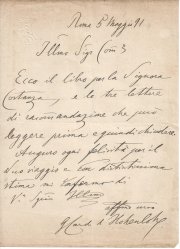 Roma 5 Maggio 91
Illmo Sigr Com
Ecco il libro per la Signora
Costanza, e le tre lettere
di raccomandazione che può
leggere prima e quindi chiudere.
Auguro ogni felicità pel il
Suo viaggio e con distintissima
stima mi confermo di
V. Illma
affmo
G Card d' Hohenlohe